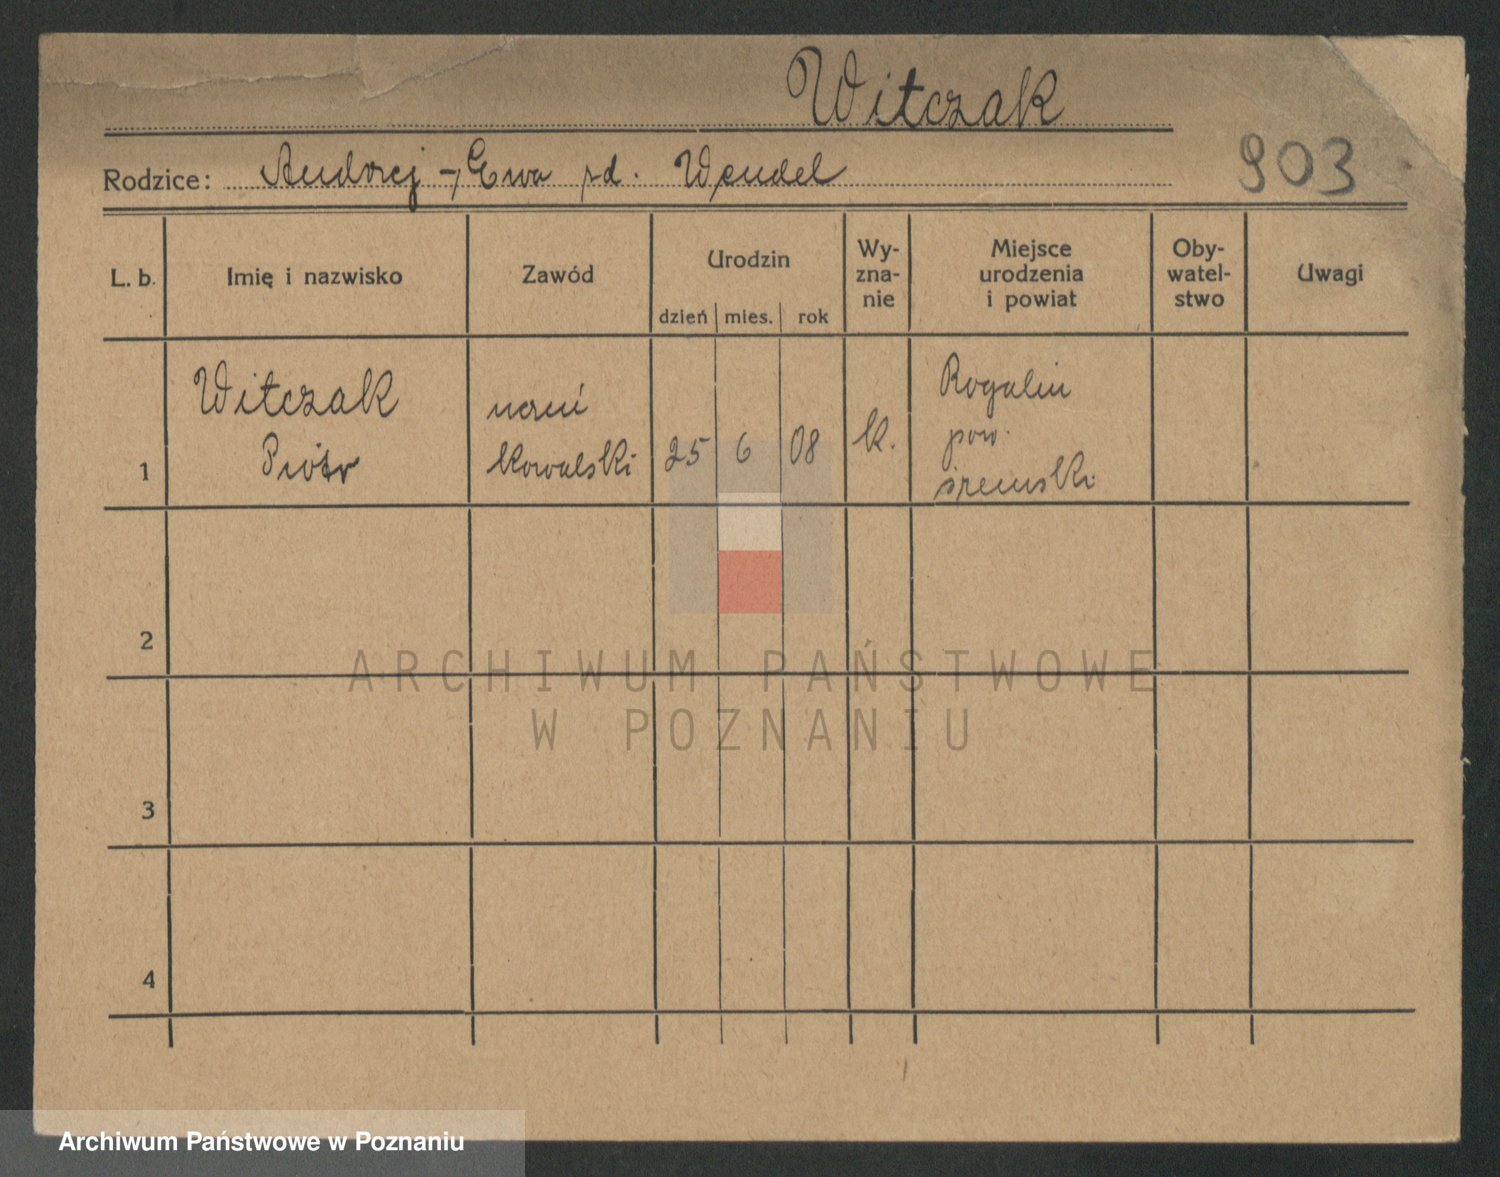 Witczak
Rodzice: Andrzej -, Ewa zd. Wendel
903
L. b. Imię i nazwisko Zawód Urodzin dzień mies. rok Wy-
zna-
nie Miejsce
urodzenia
i powiat Oby-
watel-
stwo Uwagi
Witczak
Piotr
uczeń
kowalski
1 25 6 08 k.
Rogalin
pow.
śremski
2
3
4
ARCHIWUM PAŃSTWOWE
W POZNANIU
Archiwum Państwowe w Poznaniu